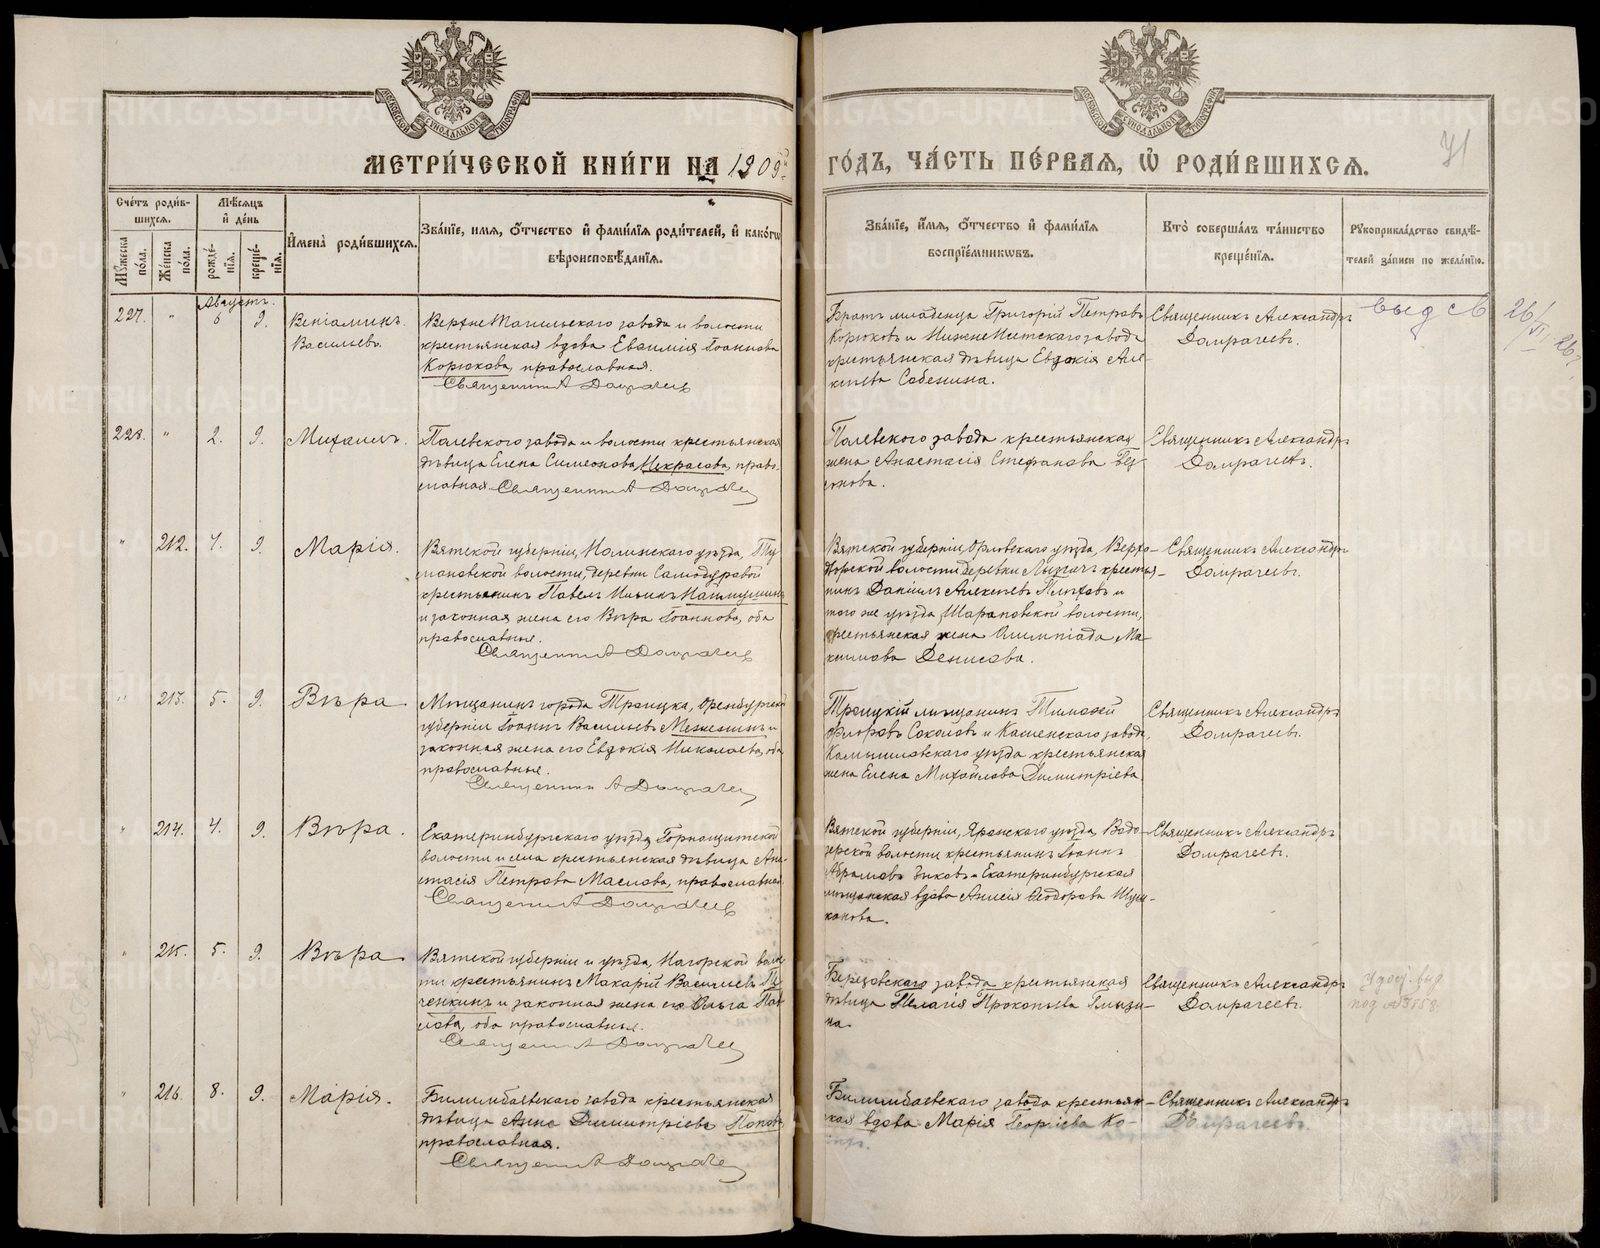 МЕТРИ́ЧЕСКОЙ КНИ́ГИ НА 1909й
ГО́ДЪ, ЧА́СТЬ ПЕ́РВАЯ, Ѡ РОДИ́ВШИХСѦ.
71
Сче́тъ роди́в-
шихся.
Мѣ́сяцъ
и҆ де́нь
Мꙋ́жеска
по́ла.
Же́нска
по́ла.
рожде́-
нїя.
креще́-
нїя.
И҆мена̀ роди́вшихся.
Зва́нїе, имя, ѻ҆́тчество и҆ фами́лїя роди́телей, и҆ како́гѡ
вѣроисповѣ́данїя.
Зва́нїе, и҆́мя, ѻ҆́тчество и҆ фами́лїя
воспрїе́мникѡвъ.
Кто̀ соверша́лъ та́инство
креще́нїя.
Рꙋкоприкла́дство свидѣ́-
телей за́писи по жела́нїю.
Августъ.
227. " 6 9.
Веніаминъ
Васильевъ
ВерхнеТагильскаго завода и волости
крестьянская вдова Евѳимія Іоаннова
Корюкова, православная.
Священникъ А Домрачевъ
Братъ младенца Григорій Петровъ
Корюковъ и НижнеИсетскаго завода
крестьянская дѣвица Евдокія Але-
ксѣева Собенина.
Священникъ Александръ
Домрачевъ.
выд св
228. " 2. 9.
Михаилъ.
Полевского завода и волости крестьянская
дѣвица Елена Симеонова Некрасова, право-
славная. Священникъ А Домрачевъ
Полевского завода крестьянская
жена Анастасія Стефанова
Священникъ Александръ
Домрачевъ.
" 212. 4. 9.
Марія.
Вятской губерніи, Нолинскаго уѣзда, Ту-
мановской волости, деревни Самодуровой
крестьянинъ Павелъ Ильинъ Наймушинъ
и законная жена его Вѣра Іоаннова, оба
православные.
Священникъ А Домрачевъ
Вятской губерніи, Орловскаго уѣзда, Верхо-
волости деревни крестья-
нинъ Даніилъ Алексѣевъ и
того же уѣзда Шараповской волости,
крестьянская жена Олимпіада Ма-
ксимова Денисова.
Священникъ Александръ
Домрачевъ.
" 213. 5. 9.
Вѣра
Мѣщанинъ города Троицка, Оренбургской
губерніи Іоаннъ Васильевъ Меженинъ и
законная жена его Евдокія Николаева, оба
православные.
Священникъ А Домрачевъ
Троицкій мѣщанинъ Тимоѳей
Флоровъ Соколовъ и Каменскаго завода,
Камышловскаго уѣзда крестьянская
жена Елена Михайлова Димитріева
Священникъ Александръ
Домрачевъ.
" 214. 4. 9.
Вѣра.
Екатеринбургскаго уѣзда Горнощитской
волости и села крестьянская дѣвица Ана-
стасія Петрова Маслова, православная.
Священникъ А Домрачевъ
Вятской губерніи, Яранскаго уѣзда, Водо-
зерской волости крестьянинъ Іоаннъ
Абрамовъ Зыковъ и Екатеринбургская
мѣщанская вдова Анисія Ѳеодорова
Священникъ Александръ
Домрачевъ.
" 215. 5. 9.
Вѣра
Вятской губерніи и уѣзда, Нагорской воло-
сти крестьянинъ Макарій Васильевъ Пе-
ченкинъ и законная жена его Ольга Пав-
лова, оба православные.
Священникъ А Домрачевъ
завода крестьянская
дѣвица Пелагія Прокопьева Глызи-
на.
Священникъ Александръ
Домрачевъ.
" 216. 8. 9.
Марія.
Билимбаевскаго завода крестьянская
дѣвица Анна Димитріева Попова
православная.
Священникъ А Домрачевъ
Билимбаевскаго завода крестьян-
ская вдова Марія Георгіева Ко-
Священникъ Александръ
Домрачевъ.
METRIKI.GASO-URAL.RU